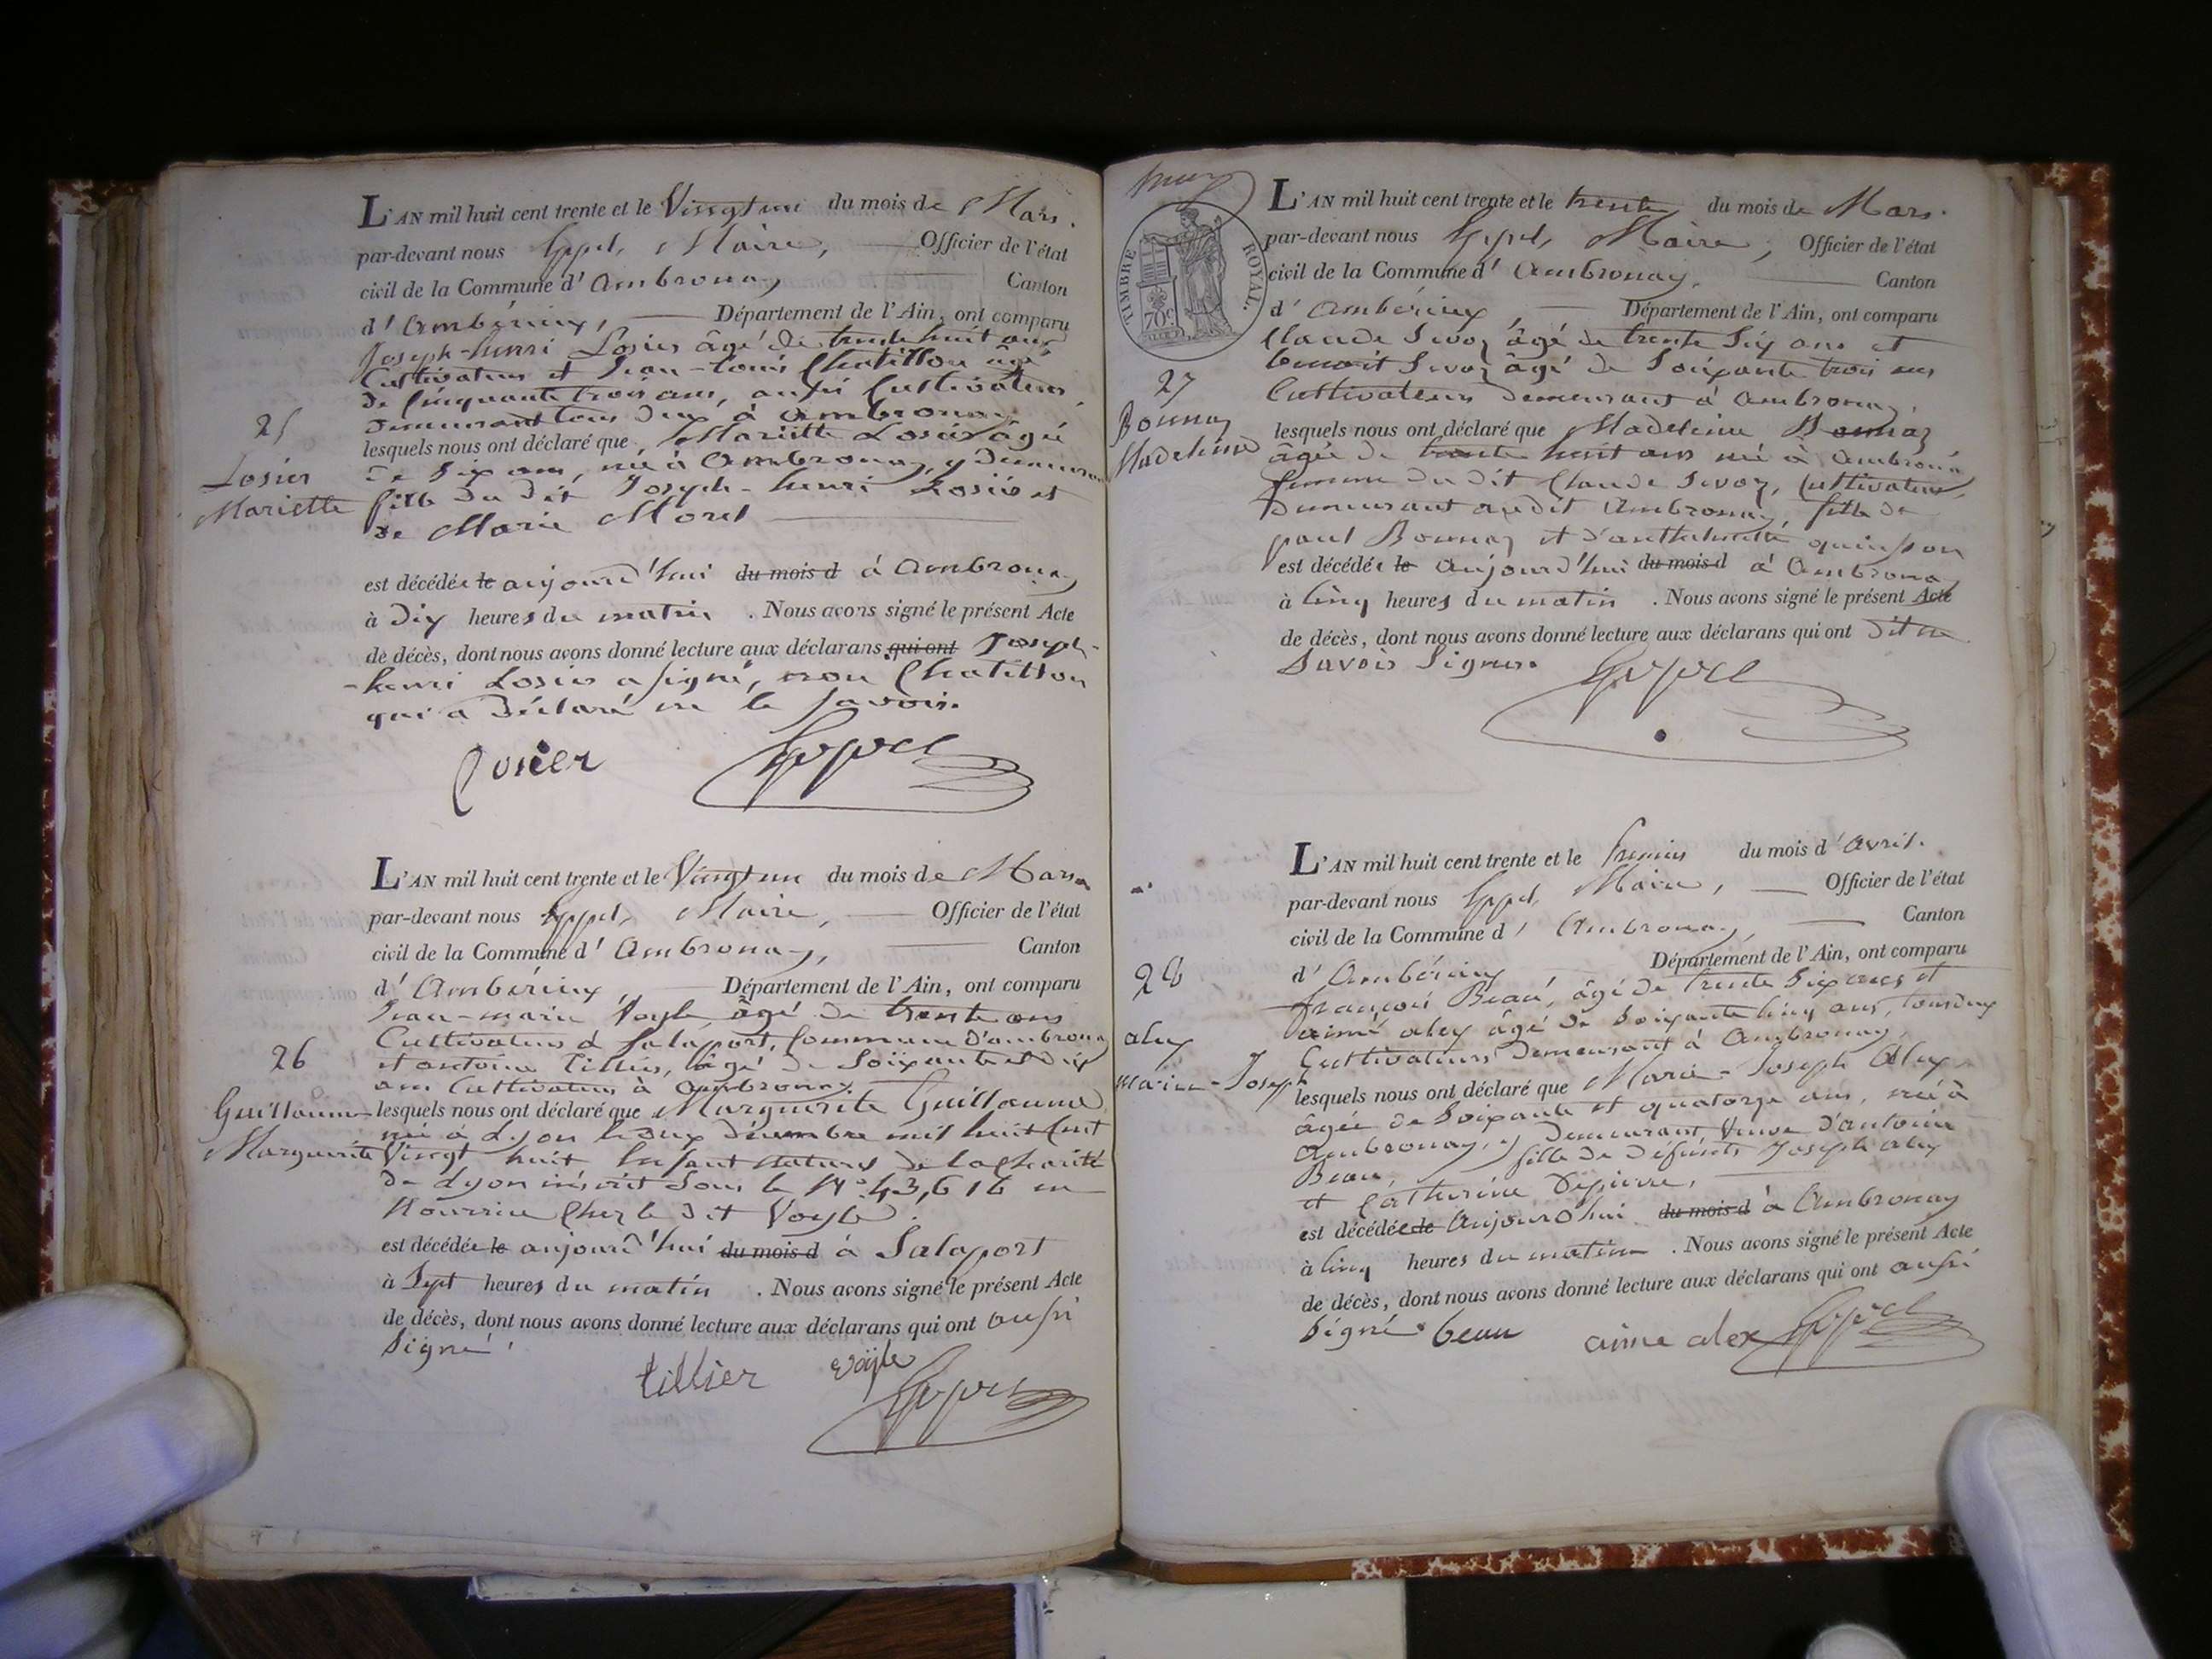 L'AN mil huit cent trente et le Vingt un du mois de Mars.
par-devant nous Maire, Officier de l'état
civil de la Commune d'Ambronay Canton
d'Ambérieux, Département de l'Ain, ont comparu
Joseph-henri Losier âgé de trente huit ans
Cultivateur et Jean-Louis Chatillon âgé
de Cinquante trois ans, aussi Cultivateur,
demeurant tous deux à Ambronay
25
Losier
Mariette
lesquels nous ont déclaré que Mariette Losier âgée
de six ans, née à Ambronay, y demeurant
fille du dit Joseph-henri Losier et
de Marie Morel
est décédée le aujourd'hui du mois d à Ambronay
à Dix heures du matin. Nous avons signé le présent Acte
de décès, dont nous avons donné lecture aux déclarans qui ont Joseph-
-henri Losier a signé, non Chatillon
qui a déclaré ne le savoir.
L'AN mil huit cent trente et le Vingt un du mois de Mars
par-devant nous Maire, Officier de l'état
civil de la Commune d'Ambronay, Canton
d'Ambérieux, Département de l'Ain, ont comparu
Jean-marie Voyle âgé de trente ans
Cultivateur à Salaport, Commune d'ambronay
et antoine Tillier, âgé de Soixante et dix
ans Cultivateur à Ambronay.
26
Guillaume
Marguerite
lesquels nous ont déclaré que Marguerite Guillaume
née à Lyon le douze décembre mil huit Cent
Vingt huit Enfant naturel de la Charité
de Lyon inscrit sous le N° 43,616 en
Nourrice Chez le dit Voyle
est décédée le aujourd'hui du mois d à Salaport
à Sept heures du matin. Nous avons signé le présent Acte
de décès, dont nous avons donné lecture aux déclarans qui ont aussi
Signé.
tillier
TIMBRE ROYAL.
70c
L'AN mil huit cent trente et le trente du mois de Mars.
par-devant nous Maire, Officier de l'état
civil de la Commune d'Ambronay, Canton
d'Ambérieux, Département de l'Ain, ont comparu
Claude Sevoz âgé de trente Six ans et
benoit Sevoz âgé de Soixante trois ans
Cultivateurs demeurant à Ambronay
27
Bonnaz
Madeleine
lesquels nous ont déclaré que Madeleine Bonnaz
âgée de trente huit ans née à Ambronay
femme du dit Claude Sevoz, Cultivateur,
Demeurant audit Ambronay, fille de
paul Bonnaz et d'anthelmette quinson
est décédée le aujourd'hui du mois d à Ambronay
à Cinq heures du matin. Nous avons signé le présent Acte
de décès, dont nous avons donné lecture aux déclarans qui ont dit ne
Savoir Signer.
L'AN mil huit cent trente et le Premier du mois d'avril.
par-devant nous Maire, Officier de l'état
civil de la Commune d'Ambronay, Canton
d'Ambérieux Département de l'Ain, ont comparu
françois Beau, âgé de trente Six ans et
aimé alex âgé de Soixante Cinq ans, tous deux
Cultivateurs Demeurant à Ambronay,
28
alex
marie-Joseph
lesquels nous ont déclaré que Marie-Joseph Alex
âgée de Soixante et quatorze ans, née à
Ambronay, y demeurant Veuve d'antoine
Beau, fille de défunts Joseph alex
et Catherine Depierre,
est décédée le Aujourd'hui du mois d à Ambronay
à Cinq heures du matin. Nous avons signé le présent Acte
de décès, dont nous avons donné lecture aux déclarans qui ont aussi
Signé
beau aime alex